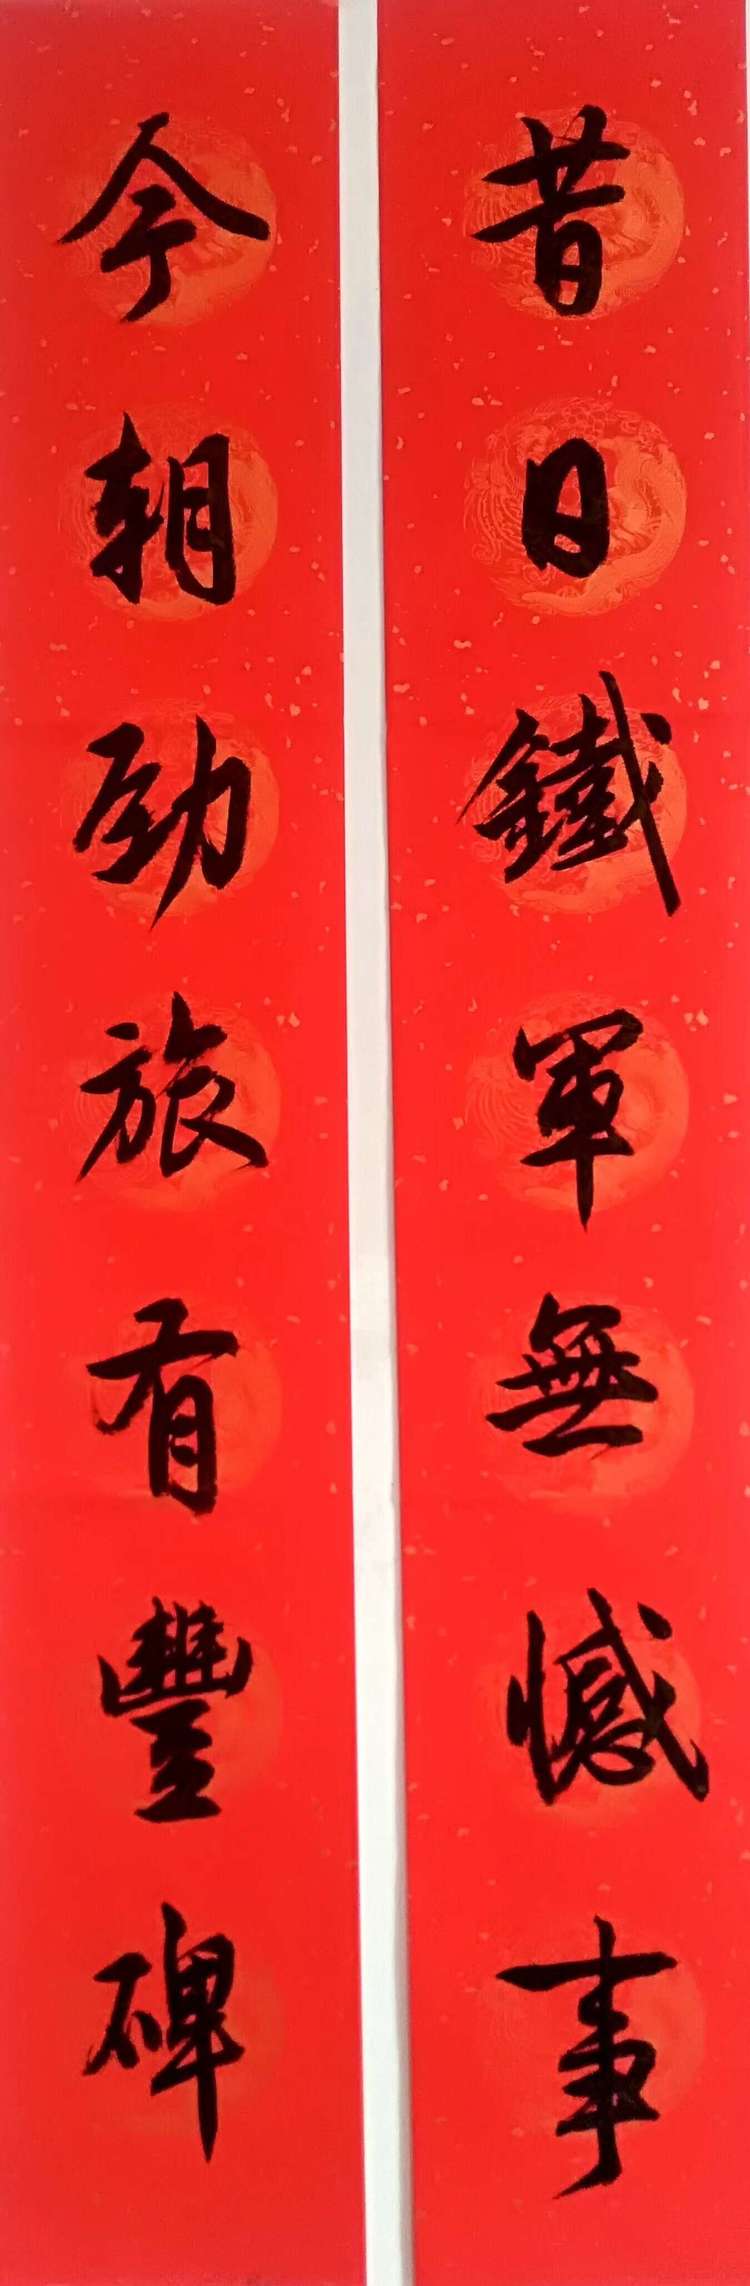 昔日鐵軍無憾事
今朝勁旅有豐碑